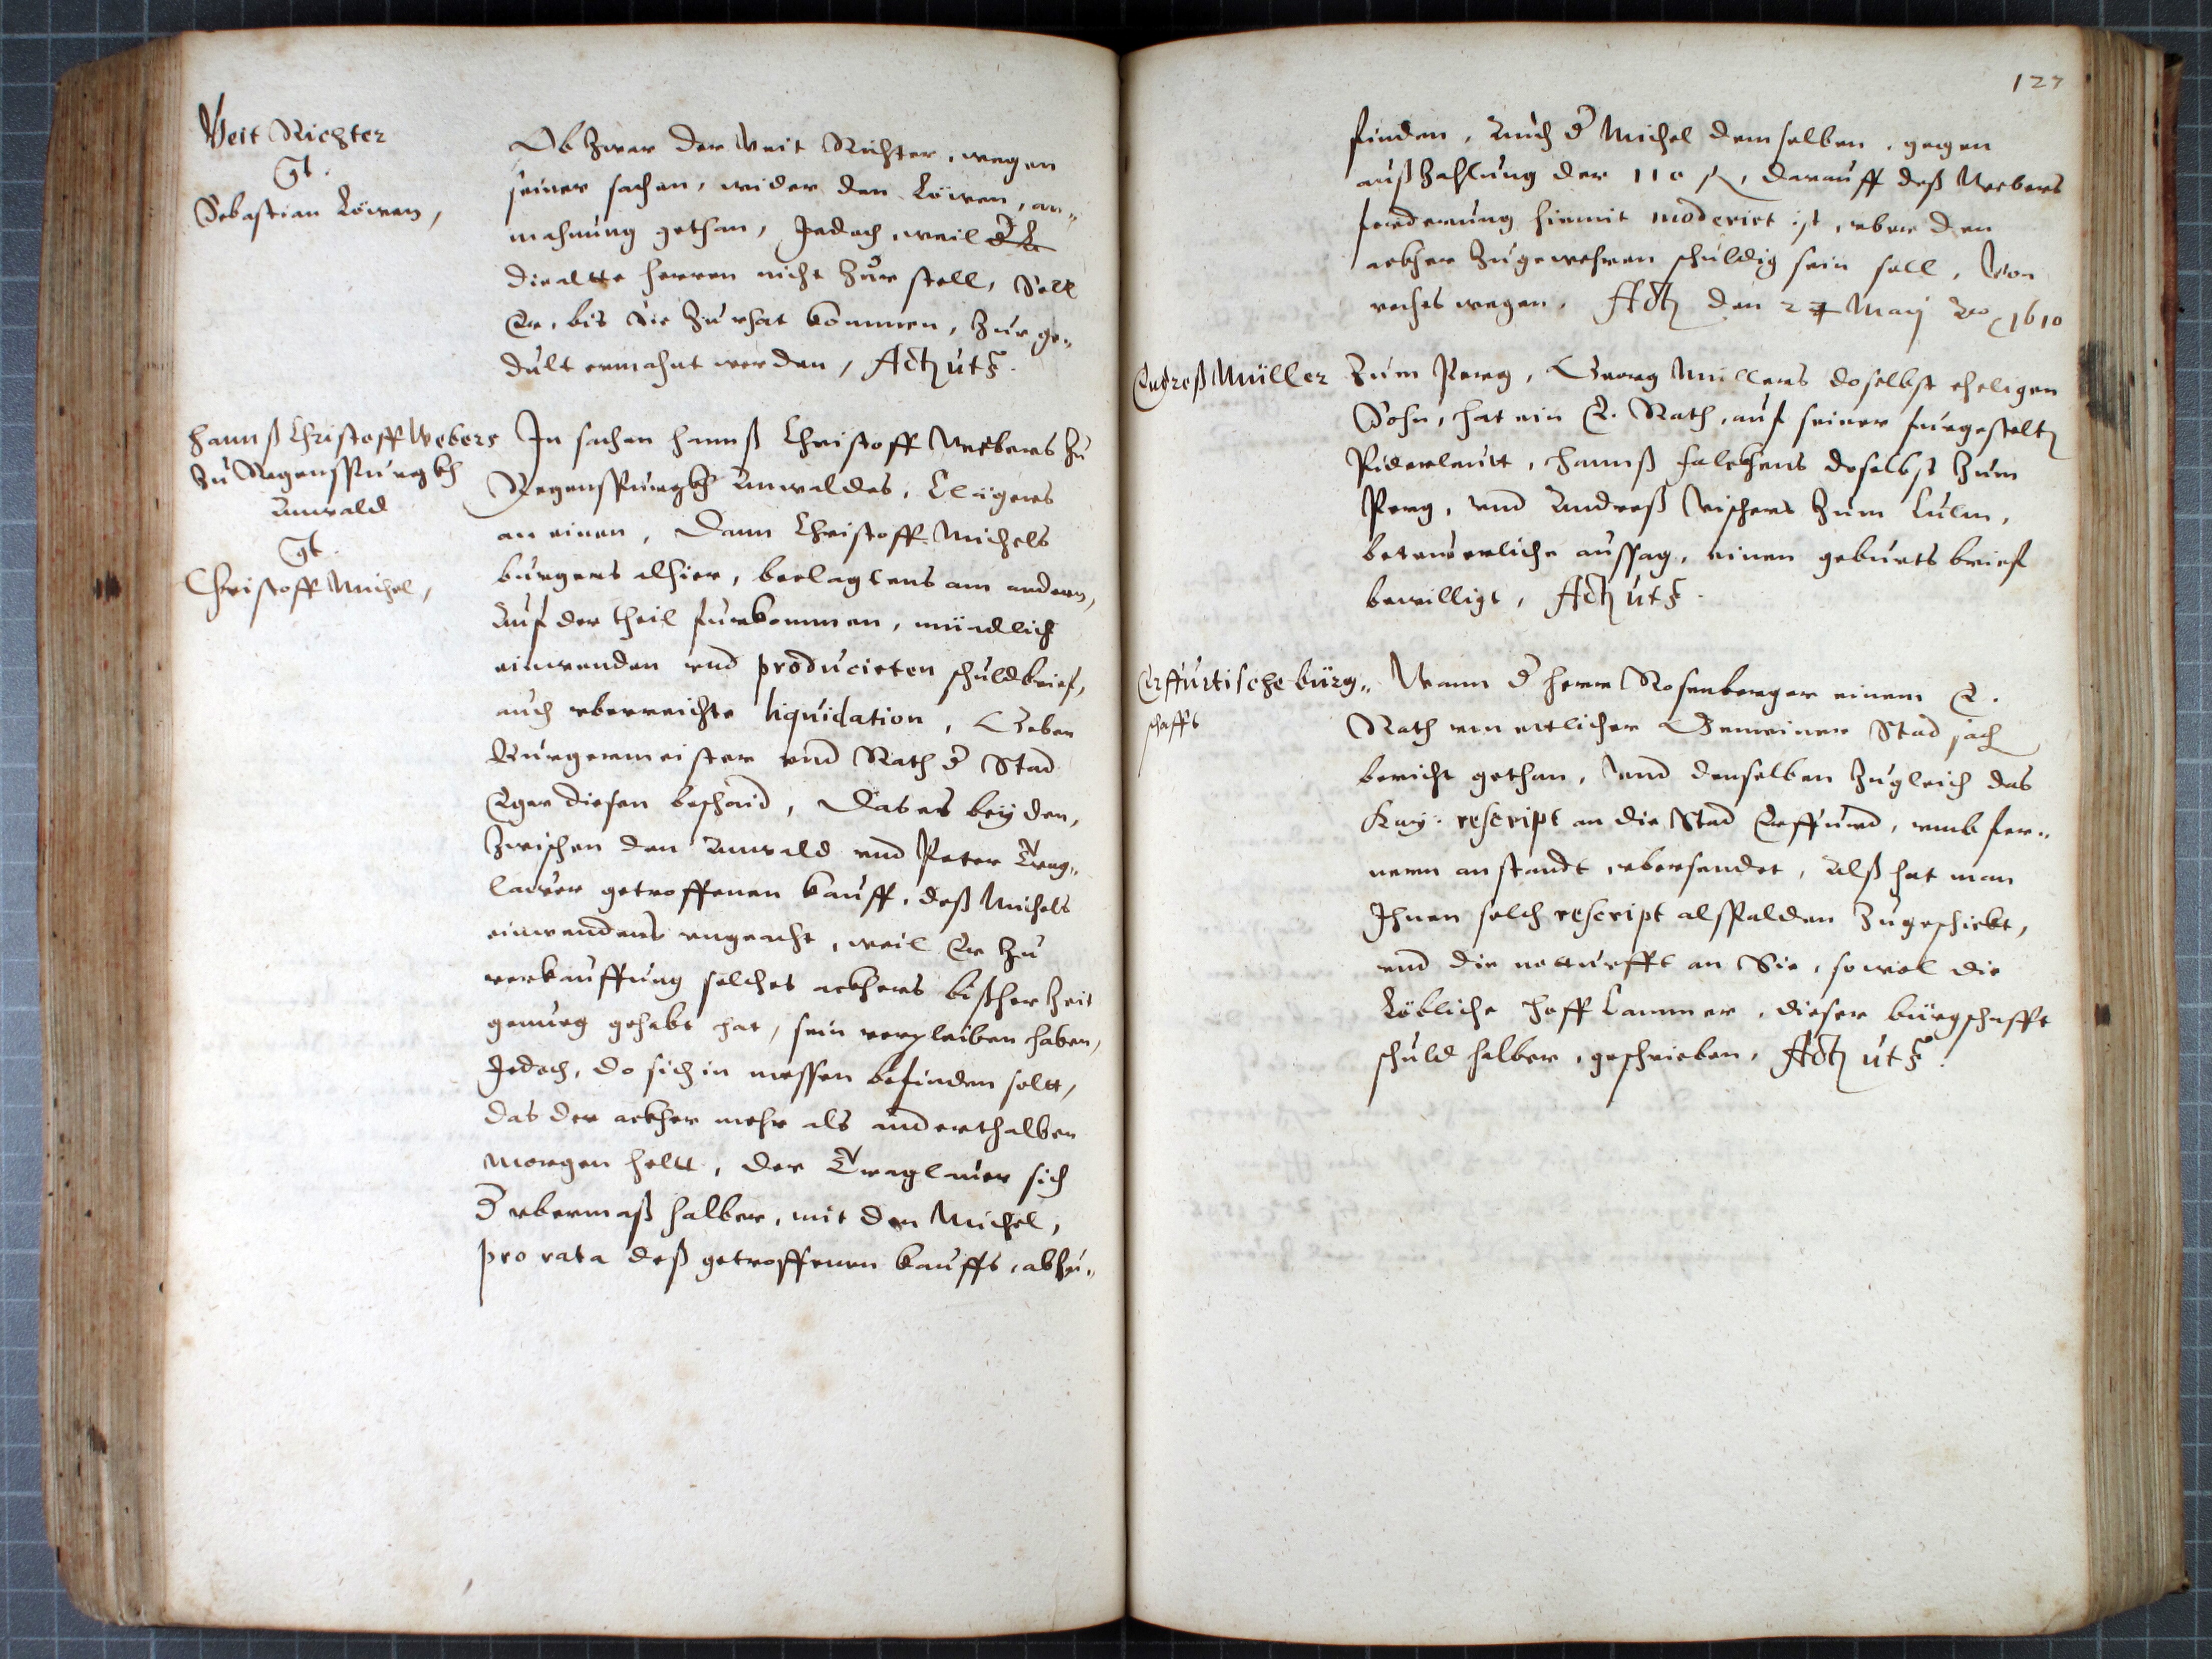 Veit Richter
gt.
Sebastian Löwen,
Ob zwar der Veit Richter, wegen
seiner sachen, wider den Löwen, an„
mahnung gethan, Jedoch, weil
die altte herren nicht zur stell, Soll
Er, bis sie zu rhat kommen, zur ge„
dult ermahnt werden, Actũ utš.
Hannß Christoff Webers
zu Regenspurgkh
Anwald
gt.
Christoff Michel,
In sachen Hannß Christoff Webers zu
Regenspurgkh Anwaldes, Clägers
an einen, Dann Christoff Michels
burgers alhier, beclagtens am andern,
Auf der theil furkommen, mündlich
einwenden vnd producirten schuldbrief,
auch vberreichte liquidation, Geben
Burgermeister vnd Rath d Stad
Eger diesen beschaid, Das es bey den,
zwischen den Anwald vnd Peter Trag„
lauer getroffenen kauff, deß Michels
einwendens vngeacht, weil Er zu
verkauffung solches ackhers bißher zeit
genueg gehabt hat, sein verpleiben haben,
Jedoch, do sich in messen befinden soltt,
das der ackher mehr als anderthalben
morgen heltt, der Traglauer sich
d vbermaß halber, mit den Michel,
pro rata deß getroffenen kauffs, abzu„
127
finden, Auch d Michel demselben, gegen
außzahlung der 110 f, darauff deß Webers
forderung hiemit moderirt ist, vber den
ackher zugewehren schuldig sein soll, Von
rechts wegen. Actũ den 27 May Ao 1610
Endreß Müller
Zum Perg, Georg Müllers doselbst eheligen
Sohn, hat ein E. Rath, auf seiner furgestelt
Piderleutt, Hannß doselbst zum
Perg, vnd Andreß Vischers zum Culm,
beteuerliche aussag, einen geburtsbrief
bewilligt, Actũ utš.
Erffurtische bürg„
schafft
Wann d herr Rosenberger einem E.
Rath von ettlicher Gemeiner Stad sach
bericht gethan, Vnd denselben zugleich das
Kay: rescript an die Stad Erffurd, vmb fer„
nern anstandt, vbersendet, Alß hat man
Ihnen solch rescript alspalden zugeschickt,
vnd die notturfft an Sie, sowol die
Löbliche Hoff Cammer, dieser bürgschafft
schuld halber, geschrieben, Actũ utš.